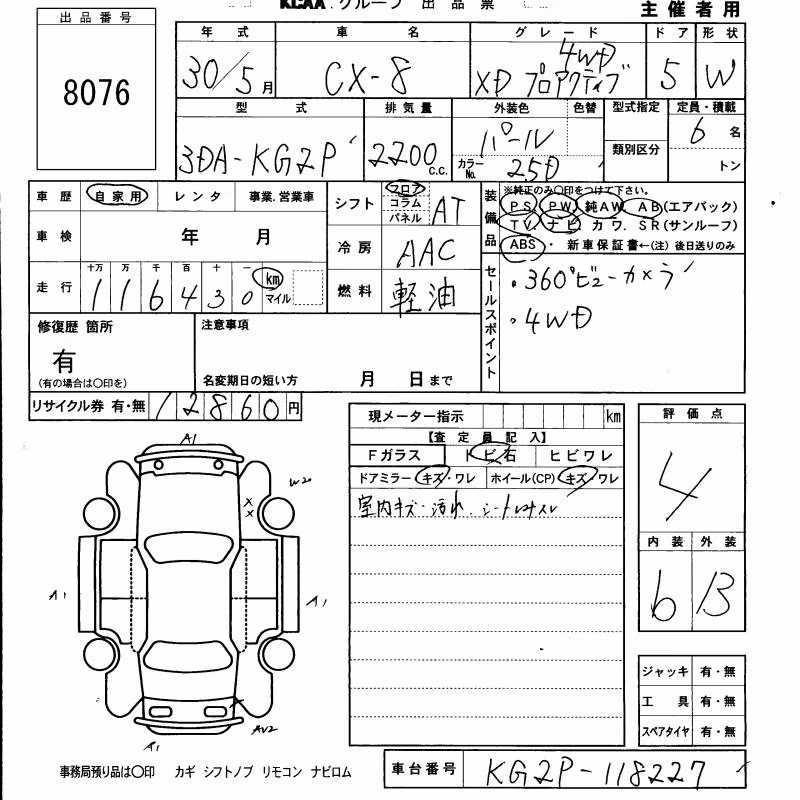 出品番号
8076
KCAA.グループ 出品票
主催者用
年式 車名 グレード ドア 形状
30/5月 CX-8 4WD XD プロアクティブ 5 W
型式 排気量 外装色 色替 型式指定 定員・積載
3DA-KG2P 2200 c.c. パール 6名
カラーNo. 25D 類別区分 トン
車歴 自家用 レンタ 事業.営業車
シフト フロア コラム パネル AT
装備品 ※純正のみ〇印をつけて下さい。
PS PW 純AW AB(エアバック)
TV. ナビ カワ. SR(サンルーフ)
ABS・ 新車保証書←(注)後日送りのみ
車検 年 月
冷房 AAC
走行 十万 万 千 百 十 一 km マイル
116430
燃料 軽油
セールスポイント
・360°ビューカメラ
・4WD
修復歴 箇所
有
(有の場合は〇印を)
注意事項
名変期日の短い方 月 日まで
リサイクル券 有・無 12860円
現メーター指示 km
【査定員記入】
Fガラス トビ石 ヒビワレ
ドアミラー キズ・ワレ ホイール(CP) キズ・ワレ
室内キズ・汚れ.
評価点
4
内装 外装
6 B
ジャッキ 有・無
工具 有・無
スペアタイヤ 有・無
A1
W2
X
X
A1
A1
AW2
A1
事務局預り品は〇印 カギ シフトノブ リモコン ナビロム
車台番号 KG2P-118227